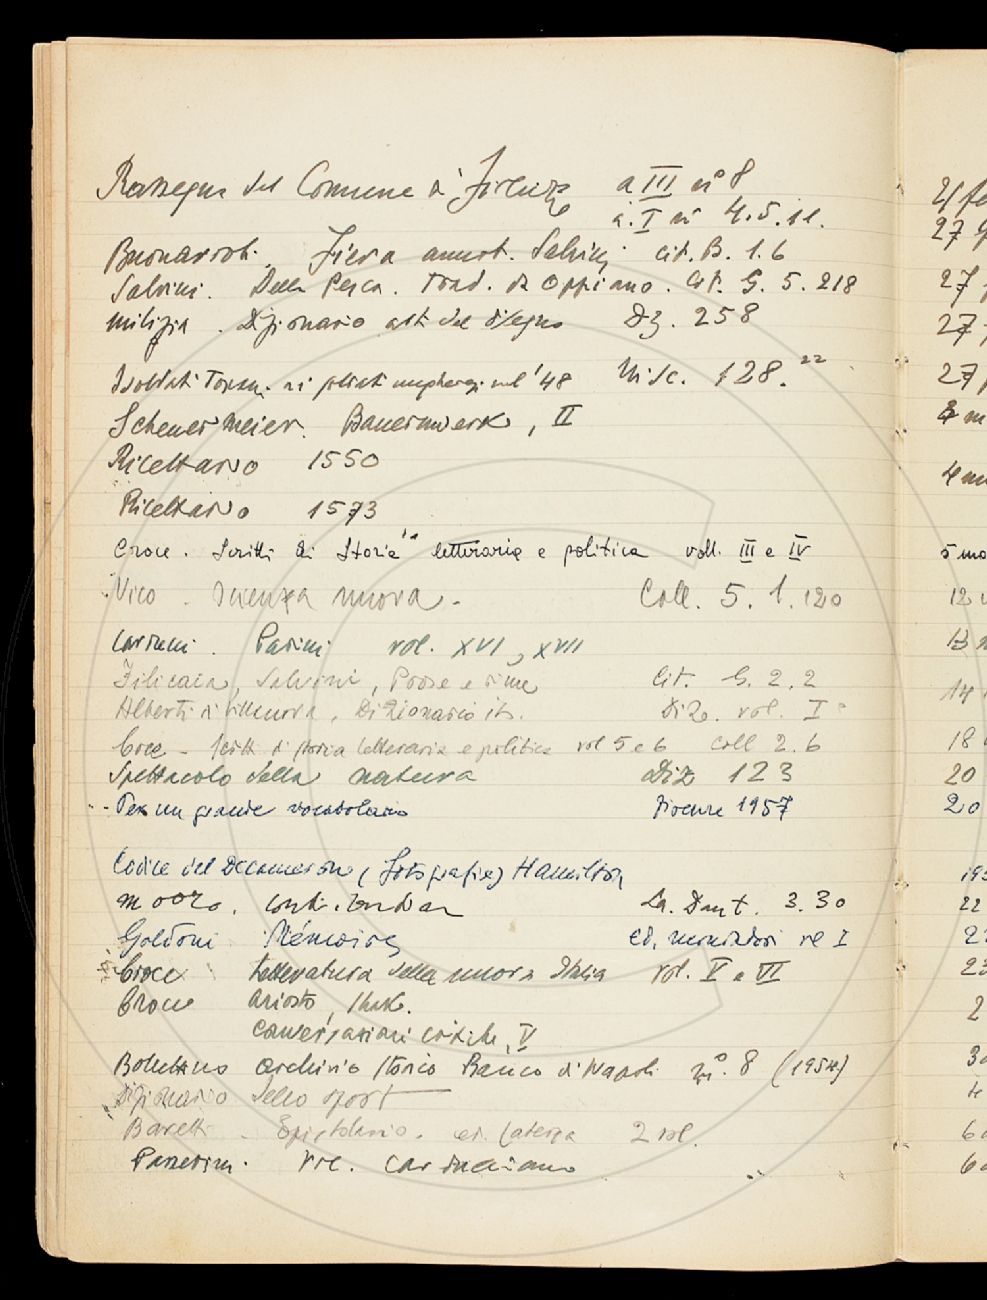 Rassegna del Comune di Firenze a III n° 8
a. I n° 4.5.11.
Buonarroti. Fiera annot. Salvini cit. B. 1.6
Salvini. Della Pesca. Trad. da Oppiano. Cit. G. 5. 218
Milizia. Dizionario arti del disegno Dz. 258
Soldati Toscani ai nel '48 Misc. 128.22
Scheuermeier. Bauernwerk, II
Ricettario 1550
Ricettario 1573
Croce. Scritti di Storia letteraria e politica voll. III e IV
Vico. Scienza nuova. Coll. 5. 1. 120
Carducci. Parini vol. XVI, XVII
Filicaia, Salvini, Prose e rime Cit. G. 2. 2
Alberti di Villanova, Dizionario it. Diz. vol. I
Croce - Scritti di storia letteraria e politica vol 5 e 6 Coll 2. 6
Spettacolo della natura Diz 123
- Per un grande vocabolario Firenze 1957
Codice del Decameron (fotografie) Hamilton
Moore. La. Dant. 3. 30
Goldoni Mémoires ed. Mondadori vol I
Croce Letteratura della nuova Italia vol. V e VI
Croce Ariosto, Shak.
Conversazioni critiche, V
Bollettino archivio storico Banco di Napoli n° 8 (1954)
Dizionario dello sport
Baretti - Epistolario. ed. Laterza 2 vol.
Panzini. carducciano
27
27
27
27
4
5
12
13
14
18
20
20
22
23